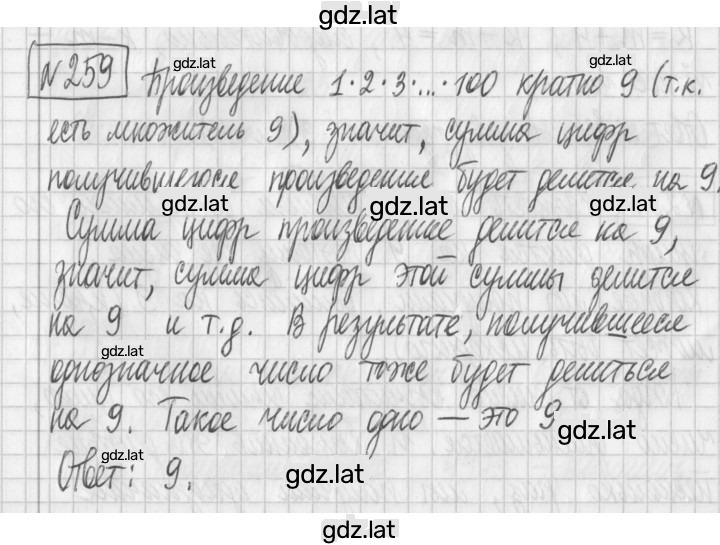 gdz.lat
№259 Произведение 1·2·3·...·100 кратно 9 (т.к.
gdz.lat gdz.lat
есть множитель 9), значит, сумма цифр
получившегося произведение будет делится на 9.
gdz.lat gdz.lat gdz.lat
Сумма цифр произведение делится на 9,
значит, сумма цифр этой суммы делится
на 9 и т.д. В результате, получившееся
gdz.lat
однозначное число тоже будет делиться
на 9. Такое число одно — это 9
gdz.lat
gdz.lat
Ответ: 9.
gdz.lat
gdz.lat